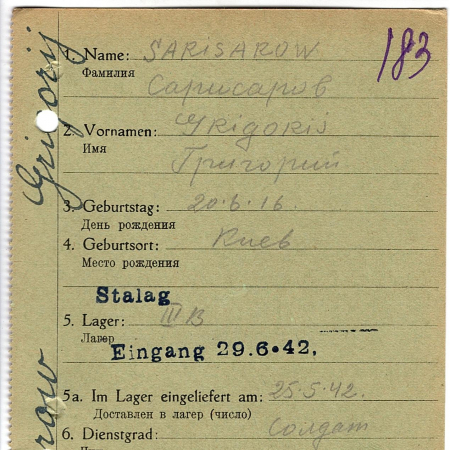 183
1. Name: SARISAROW
Фамилия
Сарисаров
2. Vornamen: Grigorij
Имя
Григорий
3. Geburtstag: 20.6.16.
День рождения
4. Geburtsort: Киев
Место рождения
Stalag
5. Lager: III B
Лагер
Eingang 29.6.42.
5a. Im Lager eingeliefert am: 25.5.42.
Доставлен в лагер (число)
6. Dienstgrad: Солдат
Grigorij
row